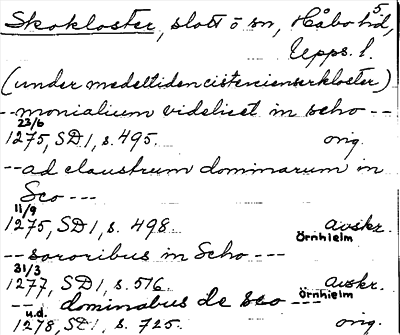 Skokloster, slott o sn, Håbo hd, 5
Upps. l.
(under medeltiden cistercienserkloster)
-- monialium videlicet in scho --
23/6
1275, SD 1, s. 495. orig.
-- ad claustrum dominarum in
Sco ---
11/9
1275, SD 1, s. 498. avskr.
Örnhielm
-- sororibus in Scho ---
31/3
1277, SD 1, s. 516. avskr.
Örnhielm
-- dominabus de sco ---
u.d.
1278, SD 1, s. 725. orig.